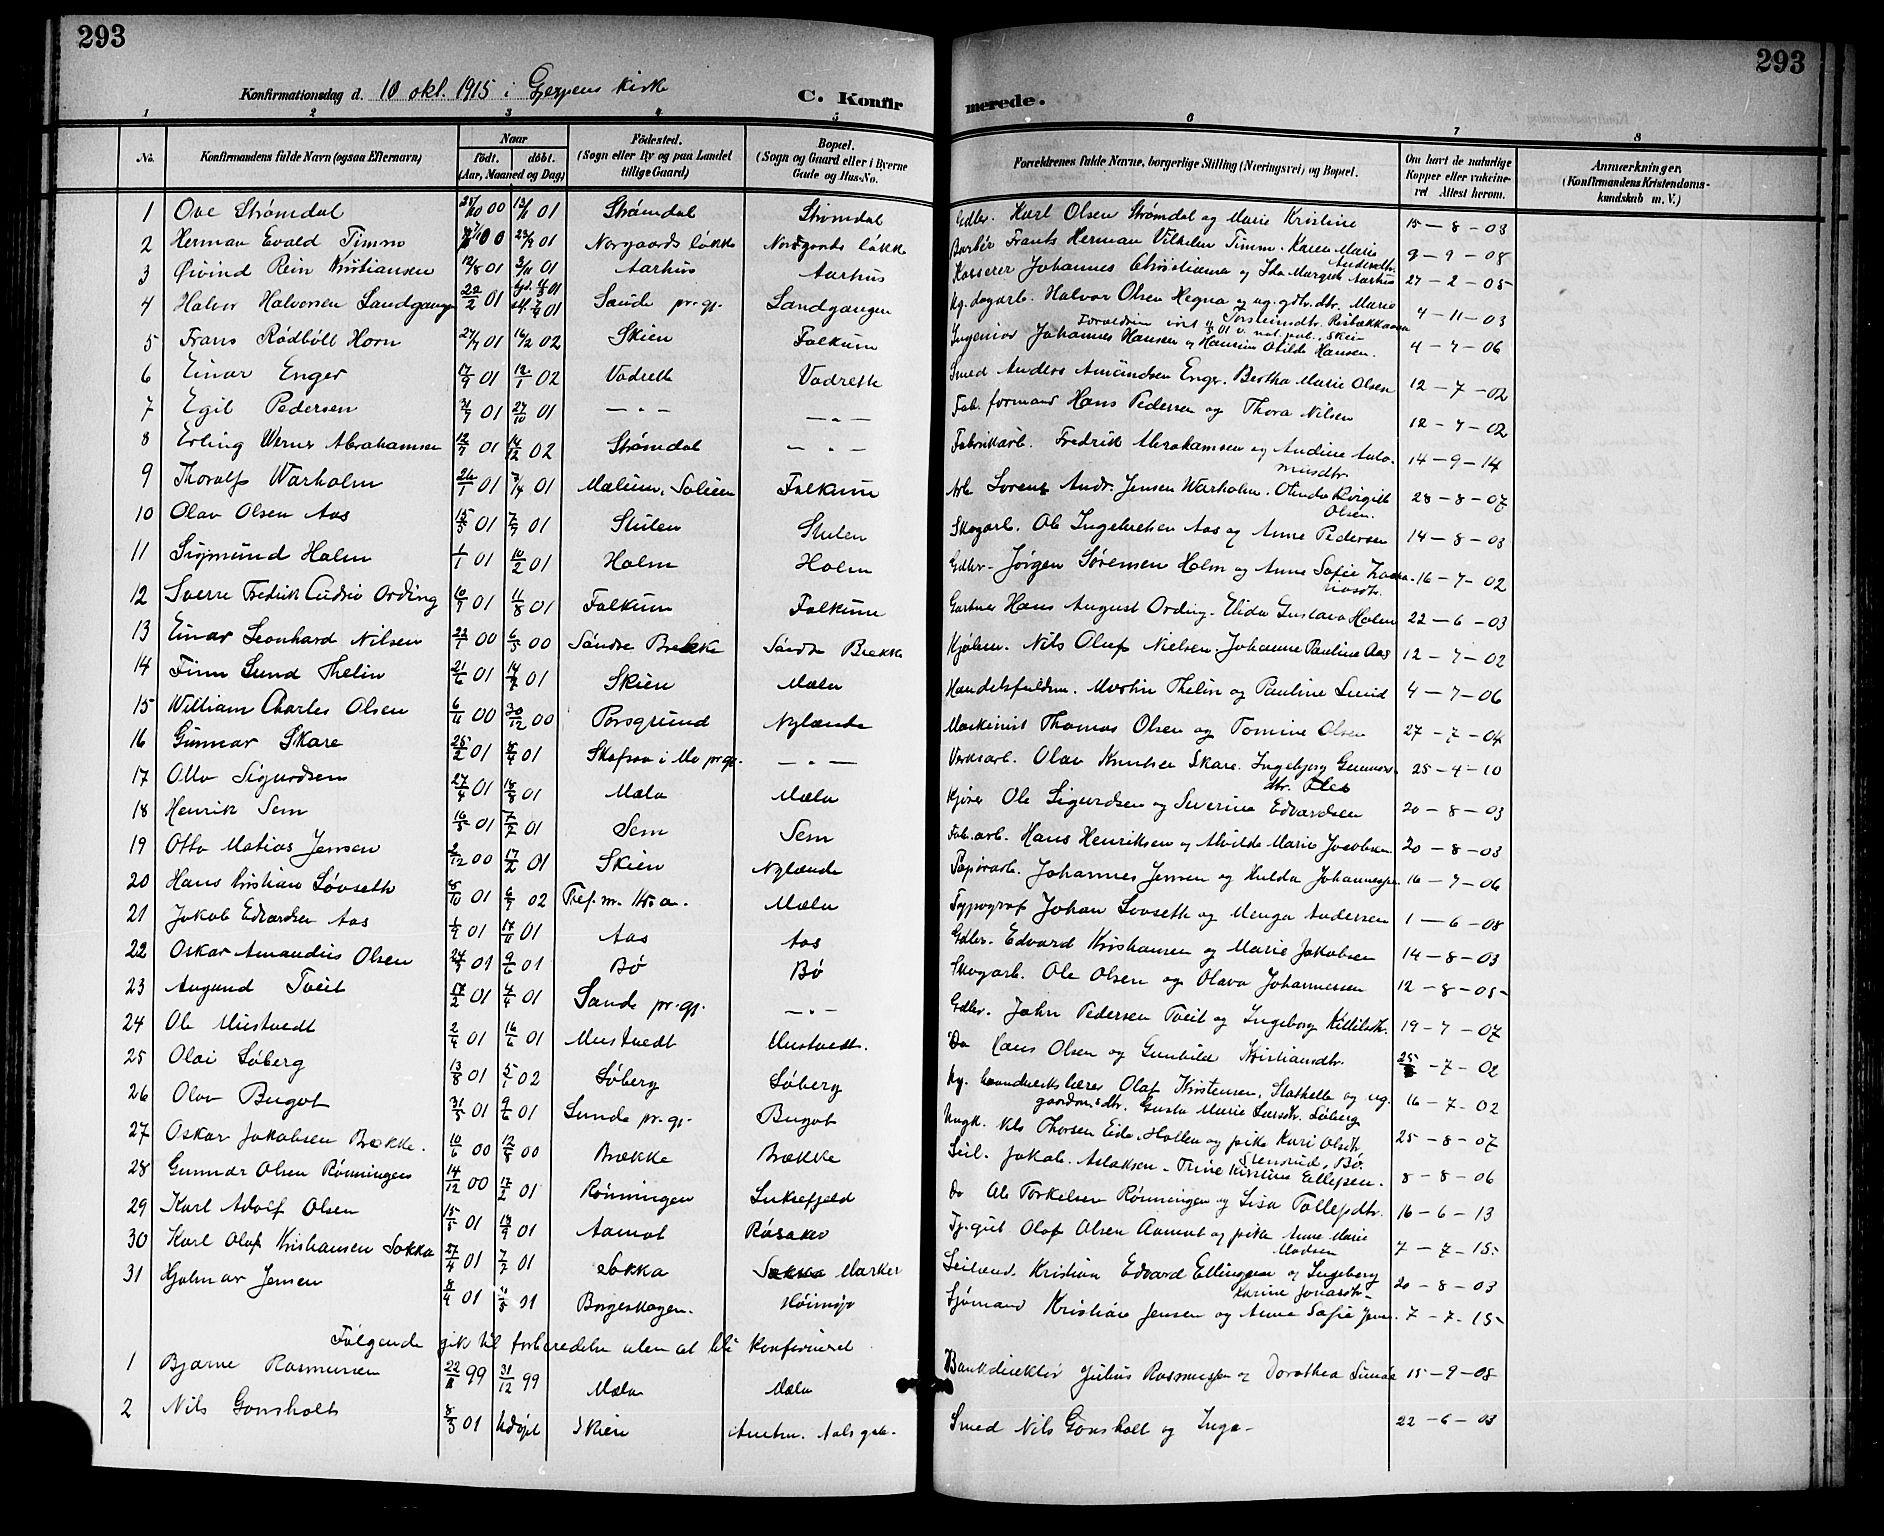 293
293
Konfirmationsdag d. 10 okt. 1915 i Gjerpens kirke
C. Konfirmerede.
1 2 3 4 5 6 7 8
No. | Konfirmandens fulde Navn (ogsaa Efternavn) | Naar født. døbt. (Aar, Maaned og Dag) | Fødested. (Sogn eller By og paa Landet tillige Gaard) | Bopæl. (Sogn og Gaard eller i Byerne Gade og Hus-No. | Forældrenes fulde Navne, borgerlige Stilling (Næringsvei) og Bopæl. | Om havt de naturlige Kopper eller vakcineret Attest herom. | Anmærkninger. (Konfirmandens Kristendomskundskab m. V.)
1 Ove Strømdal 01 Strømdal Strømdal Gdbr. Karl Olsen Strømdal og Marie Kristine 15-8-03
2 Herman Evald Timm 00 01 Norgaards løkke Norgaards løkke Barbér Frants Herman Vilhelm Timm. Karen Marie Andersdtr. 9-9-08
3 Øivind Rein Kristiansen 12/8 01 3/11 01 Aarhus Aarhus Kasserer Johannes Christiansen og Ida Margrete Aarhus 27-2-05
4 Halvor Halvorsen Landgangen 22/2 01 Saude pr.gj. Landgangen Ug. dagarb. Halvor Olsen Hegna og ug. gdbr.dtr. Marie Torsteinsdtr. Risbækkaasa 4-11-03
5 Frans Rødbøll Horn 27/7 01 16/2 02 Skien Falkum Ingeniør Johannes Hansen og Hansine Otilde Hansen. 4-7-06
6 Einar Enger 17/9 01 12/1 02 Vadrette Vadrette Smed Anders Amundsen Enger. Bertha Marie Olsen 12-7-02
7 Egil Pedersen 01 27/10 01 —"— —"— Fab. formand Hans Pedersen og Thora Nilsen 12-7-02
8 Erling Werner Abrahamsen 12/7 01 14/12 02 Strømdal —"— Fabrikarb. Fredrik Abrahamsen og Andine Antomusdtr. 14-9-14
9 Thoralf Warholm 26/1 01 01 Mælum, Solum Falkum Arb. Lorens Andr. Jensen Warholm. Olsen. 28-8-07
10 Olav Olsen Aas 15/5 01 7/7 01 Stulen Stulen Skogarb. Ole Ingebretsen Aas og Anne Pedersen 14-8-03
11 Sigmund Holm 1/1 01 10/2 01 Holm Holm Gdbr. Jørgen Sørensen Holm og Anne Sofie 16-7-02
12 Sverre Fredrik Ording 10/7 01 11/8 01 Falkum Falkum Gartner Hans August Ording. Elida Gustava Holm 22-6-03
13 Einar Leonhard Nilsen 22/1 00 6/5 00 Søndre Brekke Søndre Brekke Nils Oluf Nielsen. Johanne Pauline Aas 12-7-02
14 Finn Lund Thelin 21/6 01 01 Skien Mæla Handelsfuldm. Martin Thelin og Pauline Lund 4-7-06
15 William Charles Olsen 6/11 00 30/12 00 Porsgrund Nylænde Maskinist Thomas Olsen og Tomine Olsen 27-7-04
16 Gunnar Skare 25/2 01 01 Skafsaa i Mo pr.gj. —"— Verksarb. Olav Knutsen Skare. Ingebjørg Gunnarsdtr. 25-4-10
17 Otto Sigurdsen 27/4 01 18/8 01 Mæla Mæla Kjører Ole Sigurdsen og Severine Edvardsen 20-8-03
18 Henrik Sem 16/5 01 7/7 01 Sem Sem Fab.arb. Hans Henriksen og Alvilde Marie Jacobsen 20-8-03
19 Otto Matias Jensen 2/12 00 17/2 01 Skien Nylænde Papirarb. Johannes Jensen og Hulda Johannessen 16-7-06
20 Hans Kristian Løvseth 01 6/7 02 Mæla Typograf Johan Løvseth og Menga Andersen 1-6-08
21 Jakob Edvardsen Aas 01 17/11 01 Aas Aas Gdbr. Edvard Kristiansen og Marie Jakobsen 14-8-03
22 Oskar Amandus Olsen 24/3 01 9/6 01 Bø Bø Skogarb. Ole Olsen og Olava Johannessen 12-8-05
23 Augund Tveit 17/2 01 4/4 01 Saude pr.gj. —"— Gdbr. John Pedersen Tveit og Ingeborg Kittilsdtr. 19-7-07
24 Ole Mustvedt 2/4 01 16/6 01 Mustvedt Mustvedt. Do Hans Olsen og Gunhild Kristiansdtr. 25-7-02
25 Olai Søberg 13/8 01 5/1 02 Søberg Søberg Ug. haandverkslærer Olaf Kristensen, Stathelle og ug. gaardm.sdtr. Gusta Marie Larsdtr. Søberg 16-7-02
26 Olav Bugot 31/3 01 9/6 01 Lunde pr.gj. Bugot Ungk. Nils Thorsen Eide, Hollen og pike Kari Olsdtr. Stensrud, Bø. 25-8-07
27 Oskar Jakobsen Brække. 10/6 00 12/8 00 Brække Brække Seil. Jakob. Aslaksen. Trine Kirstine Ellefsen. 8-8-06
28 Gunnar Olsen Rønningen 14/12 00 17/2 01 Rønningen Luksefjeld Do Ole Torkelsen Rønningen og Lisa Tollefsdtr. 16-6-13
29 Karl Adolf Olsen 15/5 01 01 Aamot Røsaker Tj.gut Olaf Olsen Aamot og pike Anne Marie Madsen 7-7-15
30 Karl Olaf Kristiansen Søkka 27/4 01 7/7 01 Søkka Marker Kristian Edvard Ellingsen og Ingeborg Karine Jonasdtr. 20-8-03
31 Hjalmar Jensen 8/4 01 01 Borgeskogen. Sjømand Kristian Jensen og Anne Sofie 7-7-15
Følgende gik til forberedelse uten at bli konfirmeret
1 Bjarne Rasmussen 22/8 99 31/12 99 Mæla Mæla Bankdirektør Julius Rasmussen og Dorothea 15-9-08
2 Nils Gonsholt 8/3 01 Udøpt Skien Smed Nils Gonsholt og Inga- 22-6-03